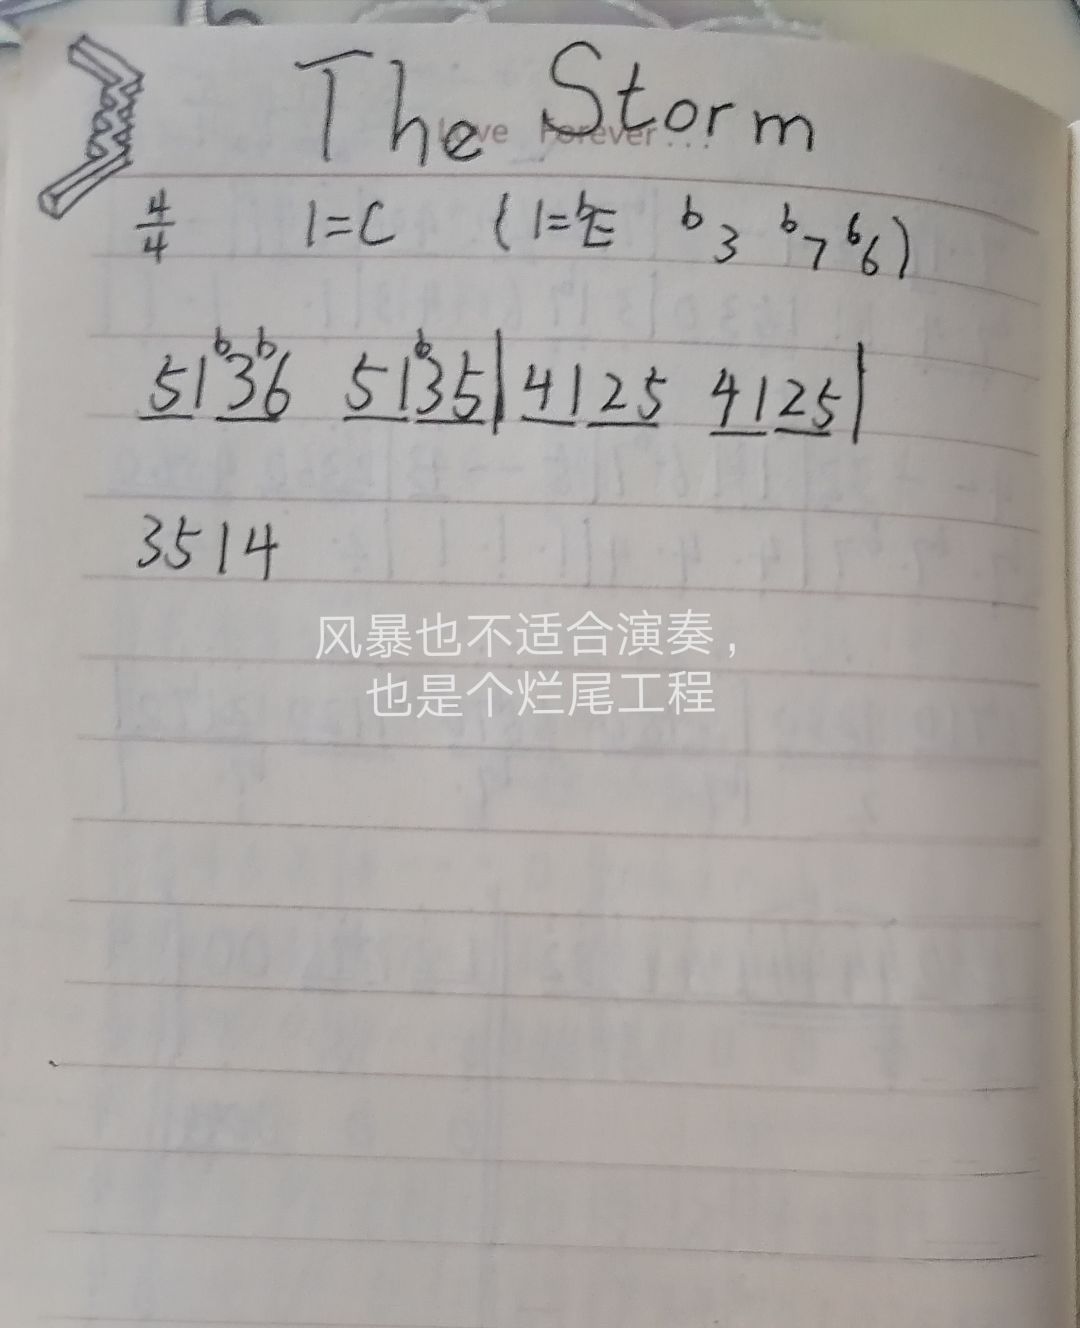 The Storm
Love Forever...
4/4 1=C (1=bE b3 b7 b6)
51b3b6 51b35|4125 4125|
3514
风暴也不适合演奏，
也是个烂尾工程